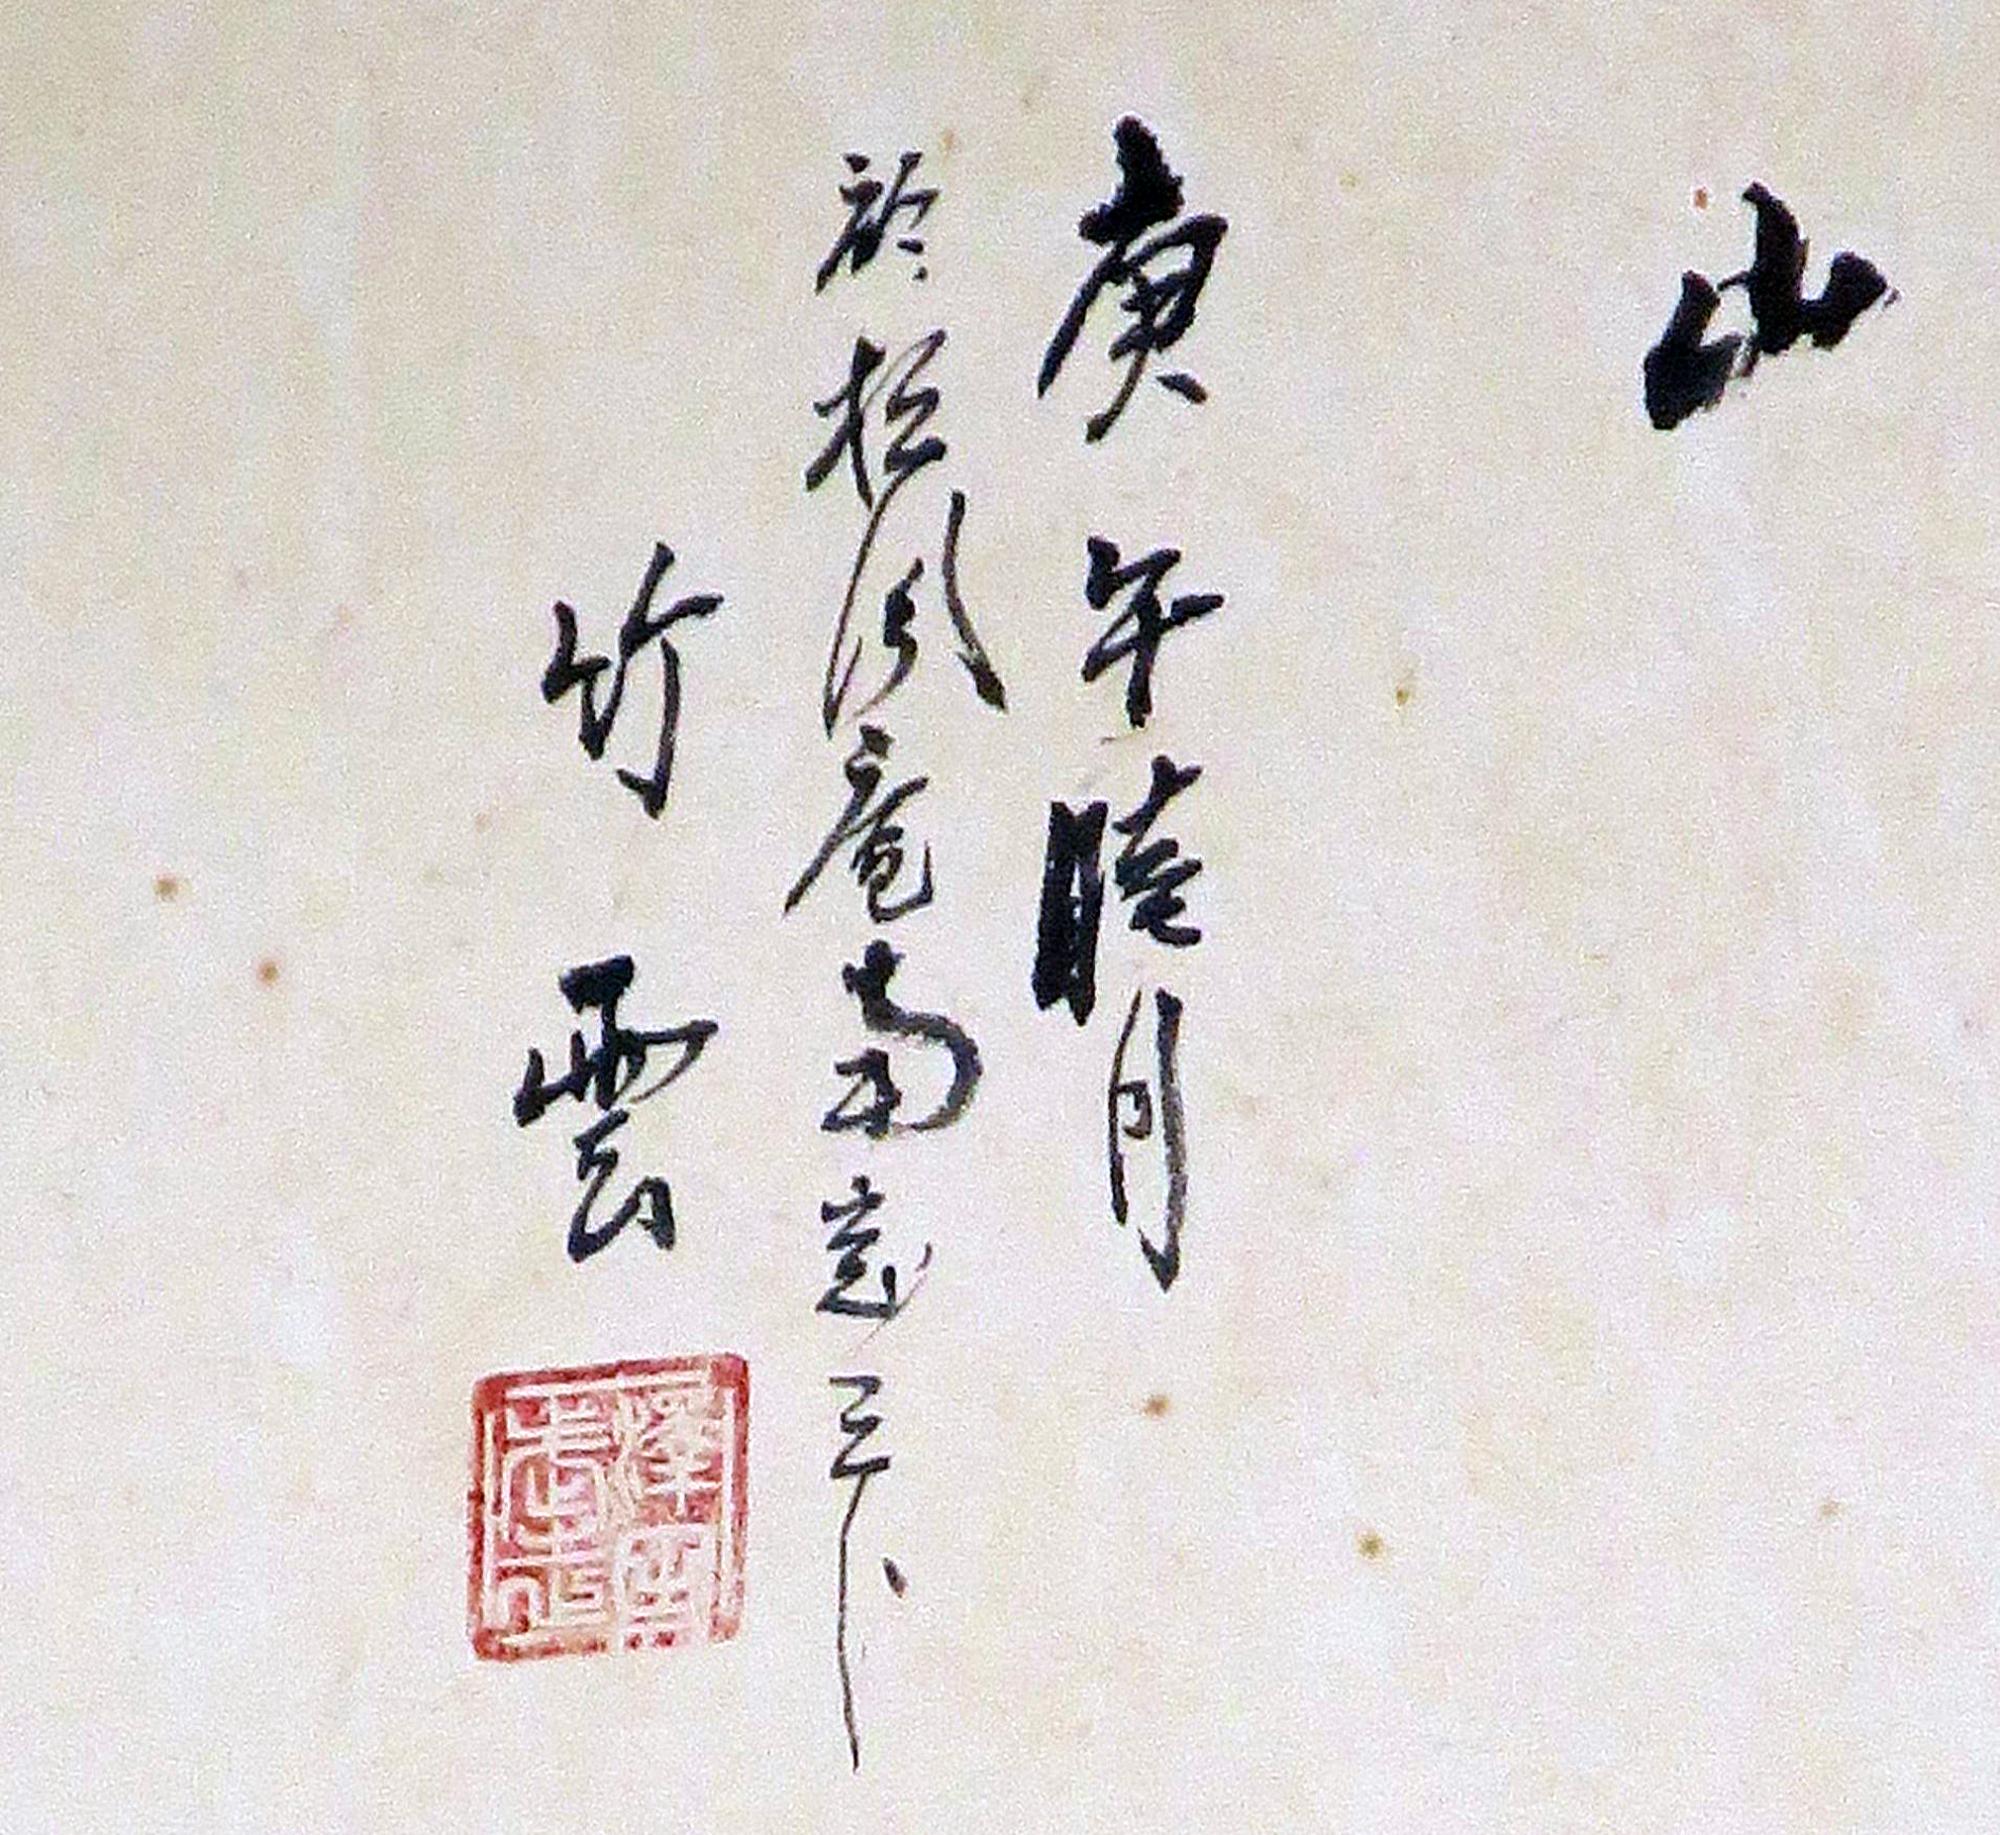 山
庚午睦月
於松風庵南窓下
竹雲